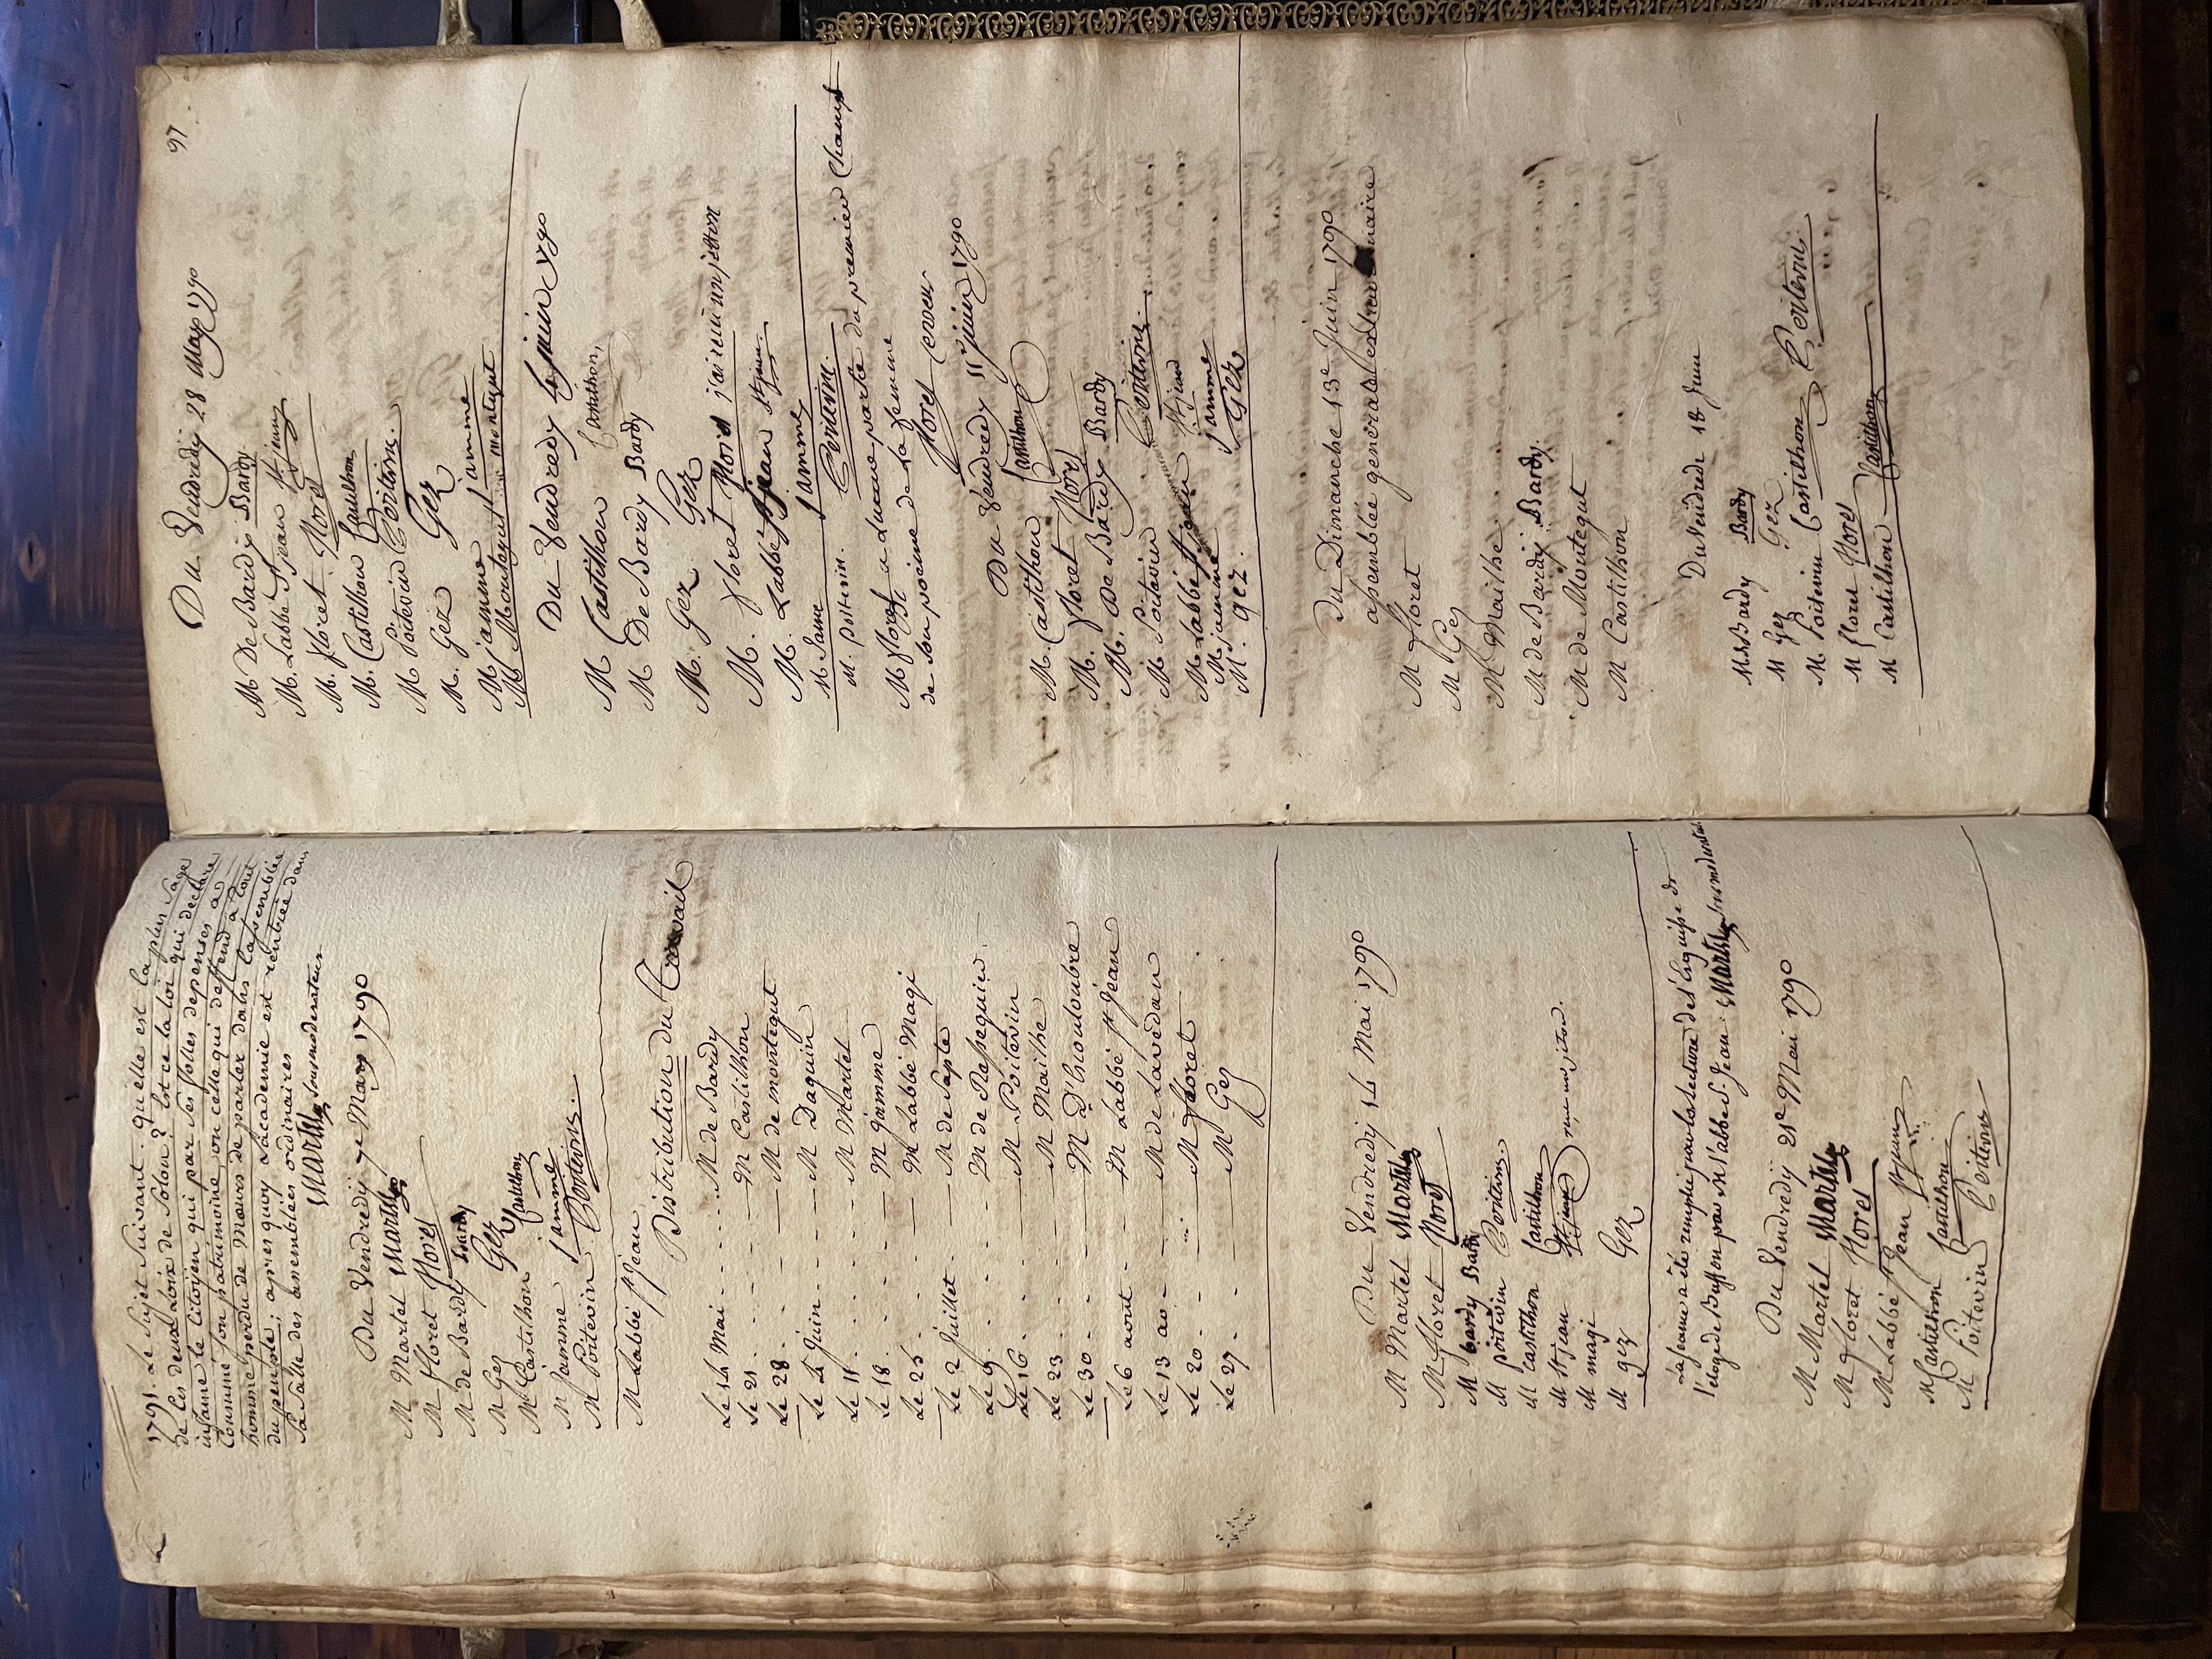 1791. Le Sujet Suivant. quelle est la plus Sage
de ces deux Loix de Solon? Est ce la loi qui declare
infame le Citoyen qui par ses folles depenses a
Consumé son patrimoine, ou celle qui deffend à tout
homme perdu de Mœurs de parler dans l'assemblée
du peuple; apres quoy L'académie est rentrée dans
Sa Salle des assemblées ordinaires
Martel Sousmoderateur
Du Vendredy 7e May 1790
M Martel Martel
M floret floret
M de Bardy Bardy
M Gez Gez
M Castilhon Castilhon
M jamme jamme
M Poitevin Poitevin.
M Labbé St jean
Distribution du Travail
Le 14 Mai M de Bardy
Le 21 M Castilhon
Le 28 M de montegut
Le 4 Juin M Daguin
Le 11 M Martel
Le 18 M jamme
Le 25 M Labbé Magi
Le 2 Juillet M de Sapte
Le 9 M de Ressseguier
Le 16 M Poitevin
Le 23 M Mailhe
Le 30 M D'hiouloubre
Le 6 aout M Labbé St Jean
Le 13 ao M de Lavedan
Le 20 M floret
Le 27 M Gez
Du Vendredy 14 Mai 1790
M Martel Martel
M floret floret
M bardy Bardy
M poitevin Poitevin.
M Castilhon Castilhon
M St jean St jean reçu un jeton.
M magi
M gez Gez
La seance a été remplie par la lecture de l'Esquisse de
l'éloge de Buffon par M l'abbé St Jean. Martel
Du Vendredy 21e Mai 1790
M Martel Martel
M floret floret
M Labbé St Jean St jean
M Castilhon Castilhon
M Poitevin Poitevin
97
Du Vendredy 28 May 1790
M De Bardy Bardy
M. Labbé St jean St jean
M. floret floret
M. Castilhon Castilhon
M Poitevin Poitevin.
M. Gez Gez
M jamme jamme
M Montegut montegut
Du Vendredy 4 juin 1790
M Castilhon Castilhon,
M De Bardy Bardy
M. Gez Gez
M. floret floret j'ai reçu un jetton
M. Labbé St jean St jean.
M Jamme jamme
M. poitevin. Poitevin.
M floret a lu une partie du premier Chant
de son poeme de la femme
floret
Du Vendredy 11e juin 1790
M. Castilhon Castilhon
M. floret floret
M. De Bardy Bardy
M Poitevin Poitevin.
M Labbé St jean St jean
M jamme jamme
M. gez. Gez
Du Dimanche 13e Juin 1790
assemblée generale extraordinaire
M floret
M Gez
M Mailhe
M de Bardy Bardy.
M de Montegut
M Castilhon
Du Vendredi 18 Juin
M de Bardy Bardy
M Gez Gez
M. Poitevin Castilhon Poitevin.
M floret floret
M Castilhon Castilhon